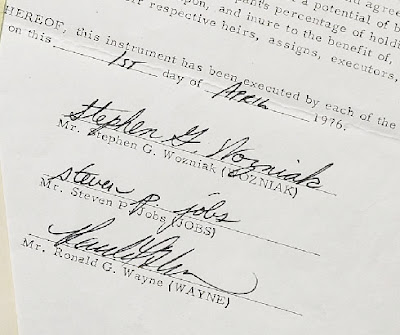 and agree
a potential of b
pant's percentage of hold
upon, and inure to the benefit of,
ir respective heirs, assigns, executors,
HEREOF, this instrument has been executed by each of the
on this 1ST day of APRIL 1976.
Stephen G. Wozniak
Mr. Stephen G. Wozniak (WOZNIAK)
steven p. jobs
Mr. Steven P. Jobs (JOBS)
Mr. Ronald G. Wayne (WAYNE)